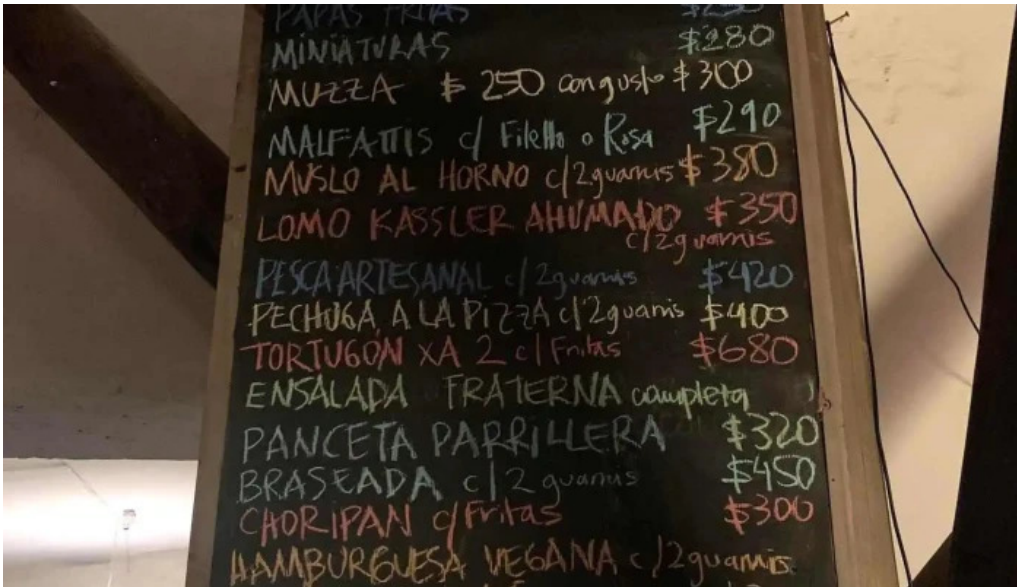 PAPAS FRITAS $250
MINIATURAS $280
MUZZA $ 250 con gusto $300
MALFATTIS c/ Filetto o Rosa $290
MUSLO AL HORNO c/2guarnis $380
LOMO KASSLER AHUMADO $350
c/2guarnis
PESCA ARTESANAL c/2guarnis $420
PECHUGA A LA PIZZA c/2guarnis $400
TORTUGÓN XA 2 c/Fritas $680
ENSALADA FRATERNA completa
PANCETA PARRILLERA $320
BRASEADA c/2 guarnis $450
CHORIPAN c/Fritas $300
HAMBURGUESA VEGANA c/2guarnis